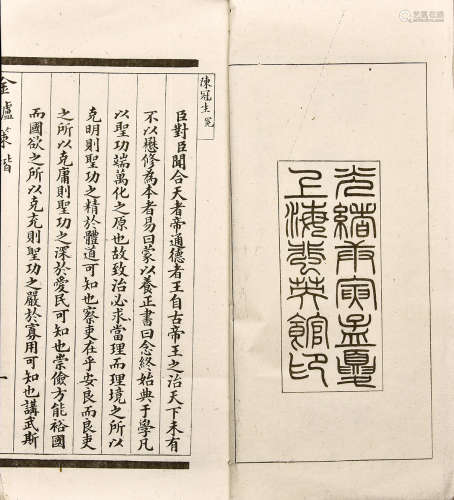 光緒庚寅孟夏
上海蜚英館印
陳冠生冕
臣對臣聞合天者帝通德者王自古帝王之治天下未有
不以懋修為本者易曰蒙以養正書曰念終始典于學凡
以聖功端萬化之原也故致治必求當理而理境之所以
克明則聖功之精於體道可知也察吏在乎安良而良吏
之所以克庸則聖功之深於愛民可知也崇儉方能裕國
而國欲之所以克充則聖功之嚴於寡用可知也講武斯
金壚策楷
一
艺狐在线